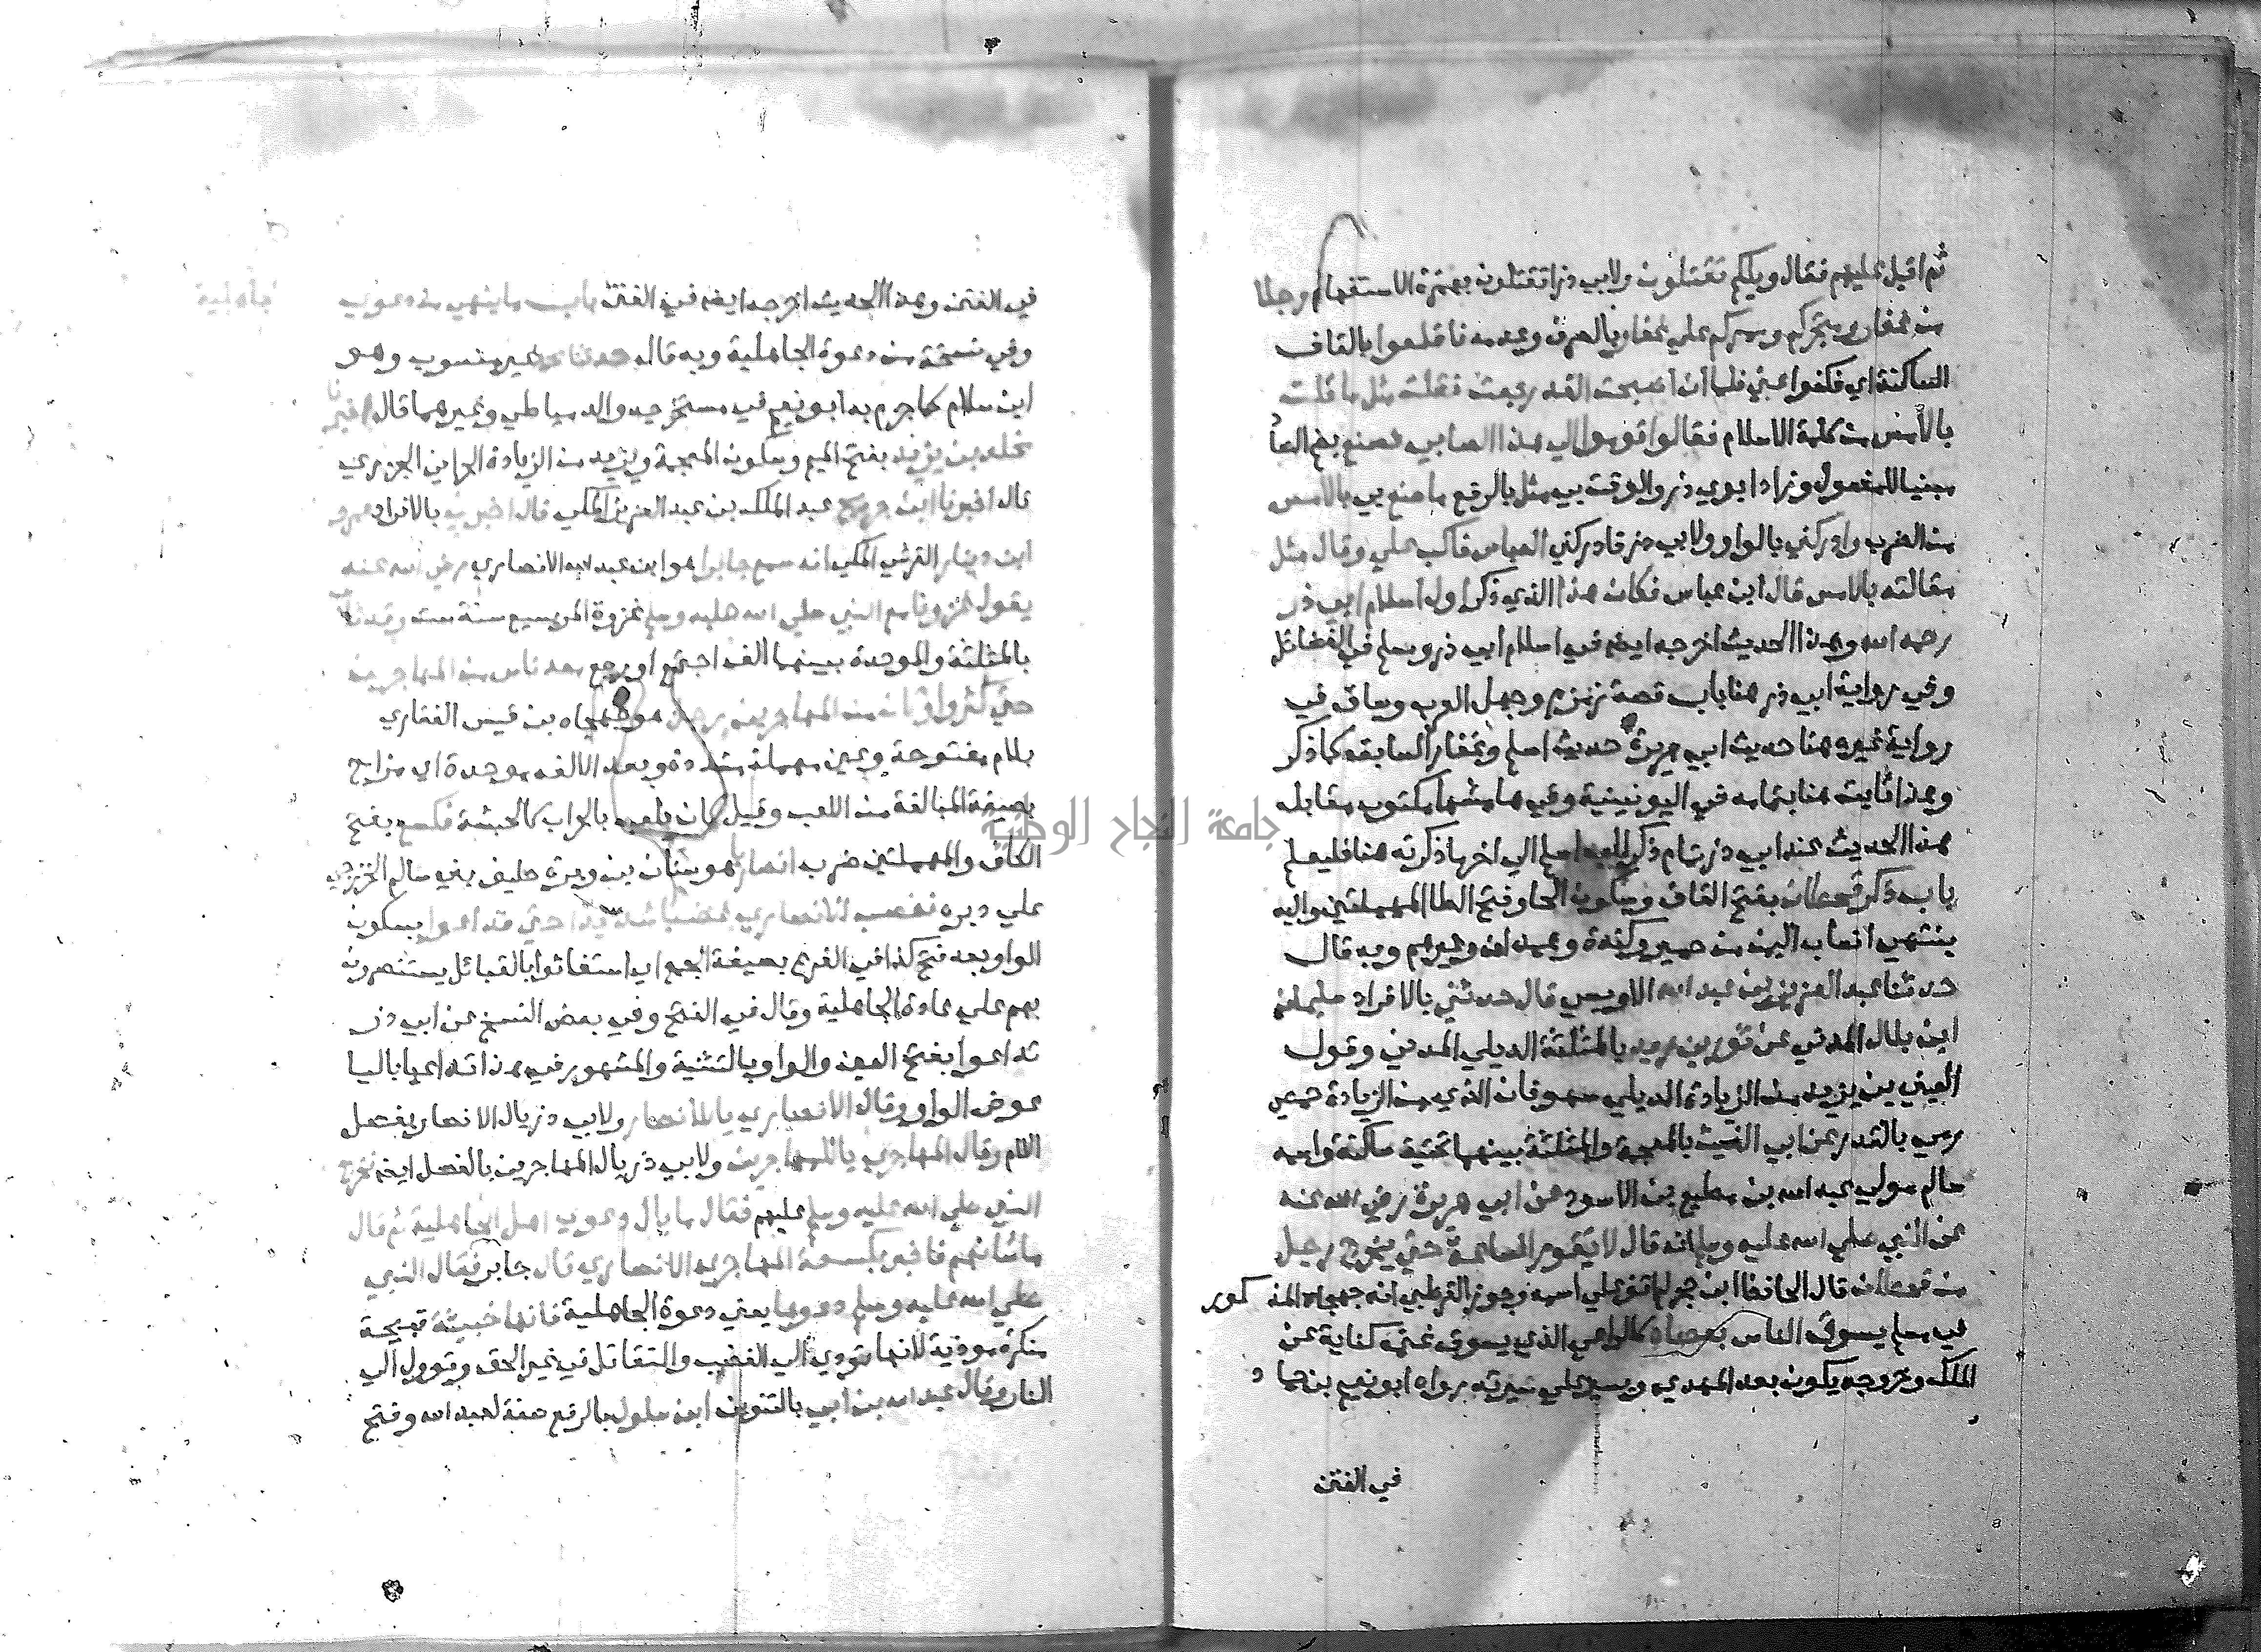 ثم اقبل عليهم فقال ويلكم تقتلون ولابي ذر اتقتلون بهمزة الاستفهام رجلا
من غفار ومتجركم وممركم على غفار بالصرف وعدمه فاقلعوا بالقاف
الساكنة اي فكفوا عني فلما ان اصبحت الغد رجعت فقلت مثل ما قلت
بالأمس من كلمة الاسلام فقالوا قوموا الي هذا الصابي فصنع بضم الصاد
مبنيا للمفعول وزاد ابوي ذر والوقت بي مثل بالرفع ما صنع بي بالامس
من الضرب وادركني بالواو ولابي ذر فادركني العباس فاكب علي وقال مثل
مقالته بالامس قال ابن عباس فكان هذا الذي ذكر اول اسلام ابي ذر
رحمه الله وهذا الحديث اخرجه ايضه في اسلام ابي ذر ومسلم في الفضائل
وفي رواية ابي ذر هنا باب قصة زمزم وجهل العرب وساق في
رواية غيره هنا حديث ابي هريرة حديث اسلم وغفار السابقه كما ذكر
وهذا ثابت هنا بتمامه في اليونينية وفي هامشها مكتوب مقابله
هذا الحديث عند ابي ذر تمام ذكر اسلم الي اخر ما ذكرته هنا فليعلم
باب ذكر قحطان بفتح القاف وسكون الحا وفتح الطا المهملتين واليه
ينتهي انساب اليمن من حمير وكندة وهمدان وغيرهم وبه قال
حدثنا عبد العزيز بن عبد الله الاويسي قال حدثني بالافراد سليمان
ابن بلال المدني عن ثور بن زيد بالمثلثة الديلي المدني وقول
العيني بن يزيد من الزيادة الديلمي سهو فان الذي من الزيادة حمصي
رمي بالقدر عن ابي الغيث بالمعجمة والمثلثة بينهما تحتية ساكنة واسمه
سالم مولي عبد الله بن مطيع بن الاسود عن ابي هريرة رضي الله عنه
عن النبي صلي الله عليه وسلم انه قال لا تقوم الساعة حتي يخرج رجل
من قحطان قال الحافظ ابن حجر لم اقف علي اسمه وجوز القرطبي انه جهجاه المذكور
في مسلم يسوق الناس بعصاه كالراعي الذي يسوق غنمه كناية عن
الملك وخروجه يكون بعد المهدي ويسير علي سيرته رواه ابو نعيم بن حماد
في الفتن
في الفتن وهذا الحديث اخرجه ايضه في الفتن باب ما ينهي من دعوي
جاهلية
وفي نسخة من دعوة الجاهلية وبه قال حدثنا محمد غير منسوب وهو
ابن سلام كما جزم به ابو نعيم في مستخرجه والدمياطي وغيرهما قال اخبرنا
مخلد بن يزيد بفتح الميم وسكون المعجمة ويزيد من الزيادة الحراني الجزري
قال اخبرنا ابن جريج عبد الملك بن عبد العزيز المكي قال اخبرني بالافراد عمرو
ابن دينار القرشي المكي انه سمع جابرا هو ابن عبد الله الانصاري رضي الله عنه
يقول غزونا مع النبي صلي الله عليه وسلم غزوة المريسيع سنة ست وقد ثاب
بالمثلثة والموحدة بينهما الف اجتمع او رجع معه ناس من المهاجرين
حتي كثروا وكان من المهاجرين رجل هو جهجاه بن قيس الغفاري
بلام مفتوحة وعين مهملة مشددة وبعد الالف موحدة اي مزاح
بصيغة المبالغة من اللعب وقيل كان يلعب بالحراب كالحبشة فكسع بفتح
الكاف والمهملتين ضرب انصاريا هو سنان بن وبرة حليف بني سالم الخزرجي
علي دبره فغضب الانصاري غضبا شديدا حتي تداعوا بسكون
الواو بعد فتح كذا في الفرع بصيغة الجمع اي استغاثوا بالقبائل يستنصرون
بهم علي عادة الجاهلية وقال في الفتح وفي بعض النسخ عن ابي ذر
تداعوا بفتح العين والواو بالتثنية والمشهور في هذا تداعيا باليا
عوض الواو وقال الانصاري يا للأنصار ولابي ذر يال الانصار بفصل
اللام وقال المهاجري يا للمهاجرين ولابي ذر يال المهاجرين بالفصل ايضه فخرج
النبي صلي الله عليه وسلم عليهم فقال ما بال دعوي اهل الجاهلية ثم قال
ما شانهم فاخبر بكسعة المهاجري الانصاري قال جابر فقال النبي
صلي الله عليه وسلم دعوها يعني دعوة الجاهلية فانها خبيثة قبيحة
منكرة موذية لانها تودي الي الغضب والتقاتل في غير الحق وتوول الي
النار وقال عبد الله بن ابي بالتنوين ابن سلول بالرفع صفة لعبد الله وفتح
جامعة النجاح الوطنية